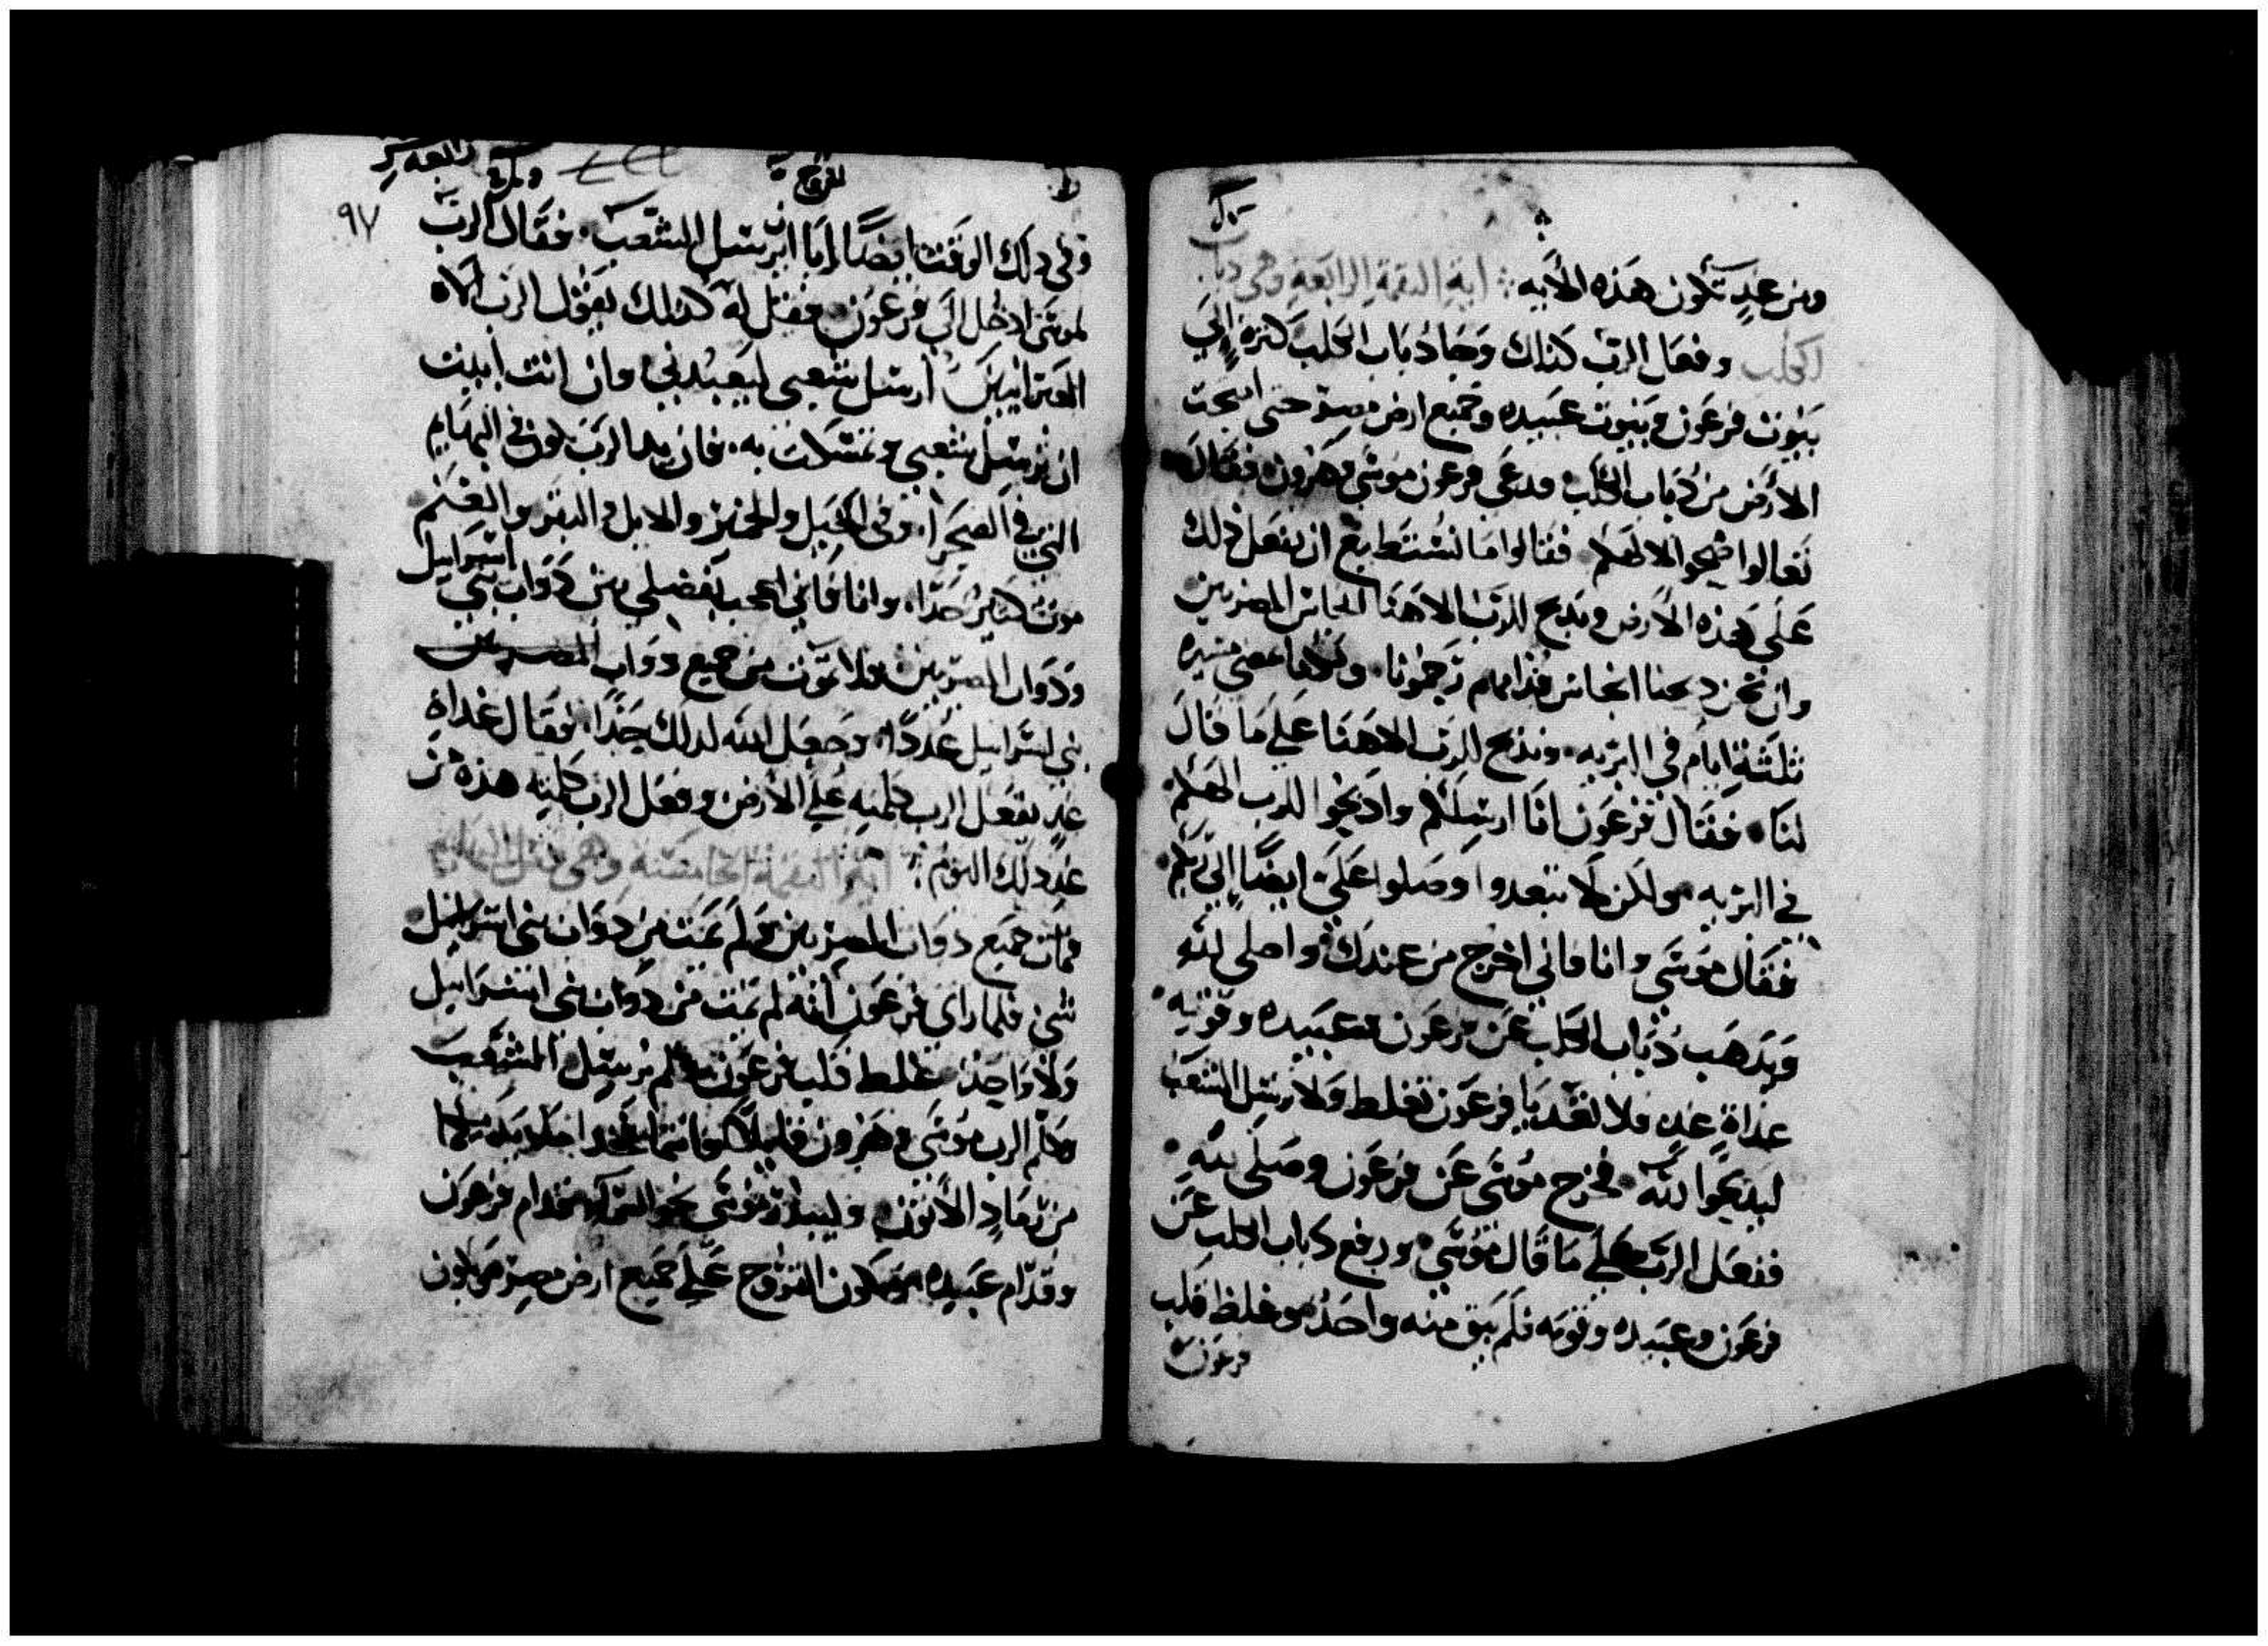 ومن غدٍ تكون هذه الأيه ∴ اية النقمة الرابعة وهي دباب
الكلب وفعل الرب كذلك وجا دباب الكلب كثرة إلي
بيوت فرعون وبيوت عبيده وجميع ارض مصر حتى
الأرض من دباب الكلب فدعى فرعون موسي وهرون فقال
تعالوا ضحوا لالهكم فقالوا ما نستطيع ان نفعل ذلك
على هذه الأرض ونذبح للرب الاهنا انجاس المصريين
وان نحن ذبحنا انجاس قدامهم رجمونا ولكنا نمضي مسيرة
ثلثة ايام في البريه ونذبح للرب الاهنا علي ما قال
لنا فقال فرعون انا ارسلكم واذبحوا للرب الهكم
في البريه ولكن لا تبعدوا وصلوا علي ايضًا إلي ربكم
فقال موسي وانا فاني اخرج من عندك واصلي لله
ويذهب ذباب الكلب عن فرعون وعبيده وقومه
غداة غدٍ فلا تعد يا فرعون تغلط ولا ترسل الشعب
ليذبحوا لله فخرج موسى عن فرعون وصلى لله
ففعل الرب علي ما قال موسي ورفع دباب الكلب عن
فرعون وعبيده وقومه فلم يبق منه واحد وغلظ قلب
فرعون
الخروج
٩٧
وفي ذلك الوقت ايضًا ابا ان يرسل الشعب فقال الرب
لموسى ادخل الى فرعون فقل له كذلك يقول الرب الاه
العبرانيين ارسل شعبي ليعبدني وان انت ابيت
ان ترسل شعبي وتمسكت به فان يد الرب تكون في البهايم
التي في الصحرا وفي الخيل والحمير والابل والبقر والغنم
موت كثير جدًا وانا فاني اعجب بفضلي بين دواب بني اسراييل
ودواب المصريين فلا تموت من جميع دواب المصريين
بني اسراييل عددًا وجعل الله لذلك حدًا فقال غداة
غدٍ يفعل الرب كلمته علي الأرض وفعل الرب كلمته هذه من
غد ذلك اليوم ∴ اية النقمة الخامسة وهي قتل البهايم
فمات جميع دواب المصريين ولم تمت من دواب بني اسراييل
شي فلما راي فرعون انه لم تمت من دواب بني اسراييل
ولا واحد غلظ قلب فرعون فلم يرسل الشعب
وكلم الرب موسى وهرون قليلا خذا انتما
من رماد الأتون وليبذر موسى نحو السما قدام فرعون
وقدام عبيده وتكون القروح علي جميع ارض مصر ويكون